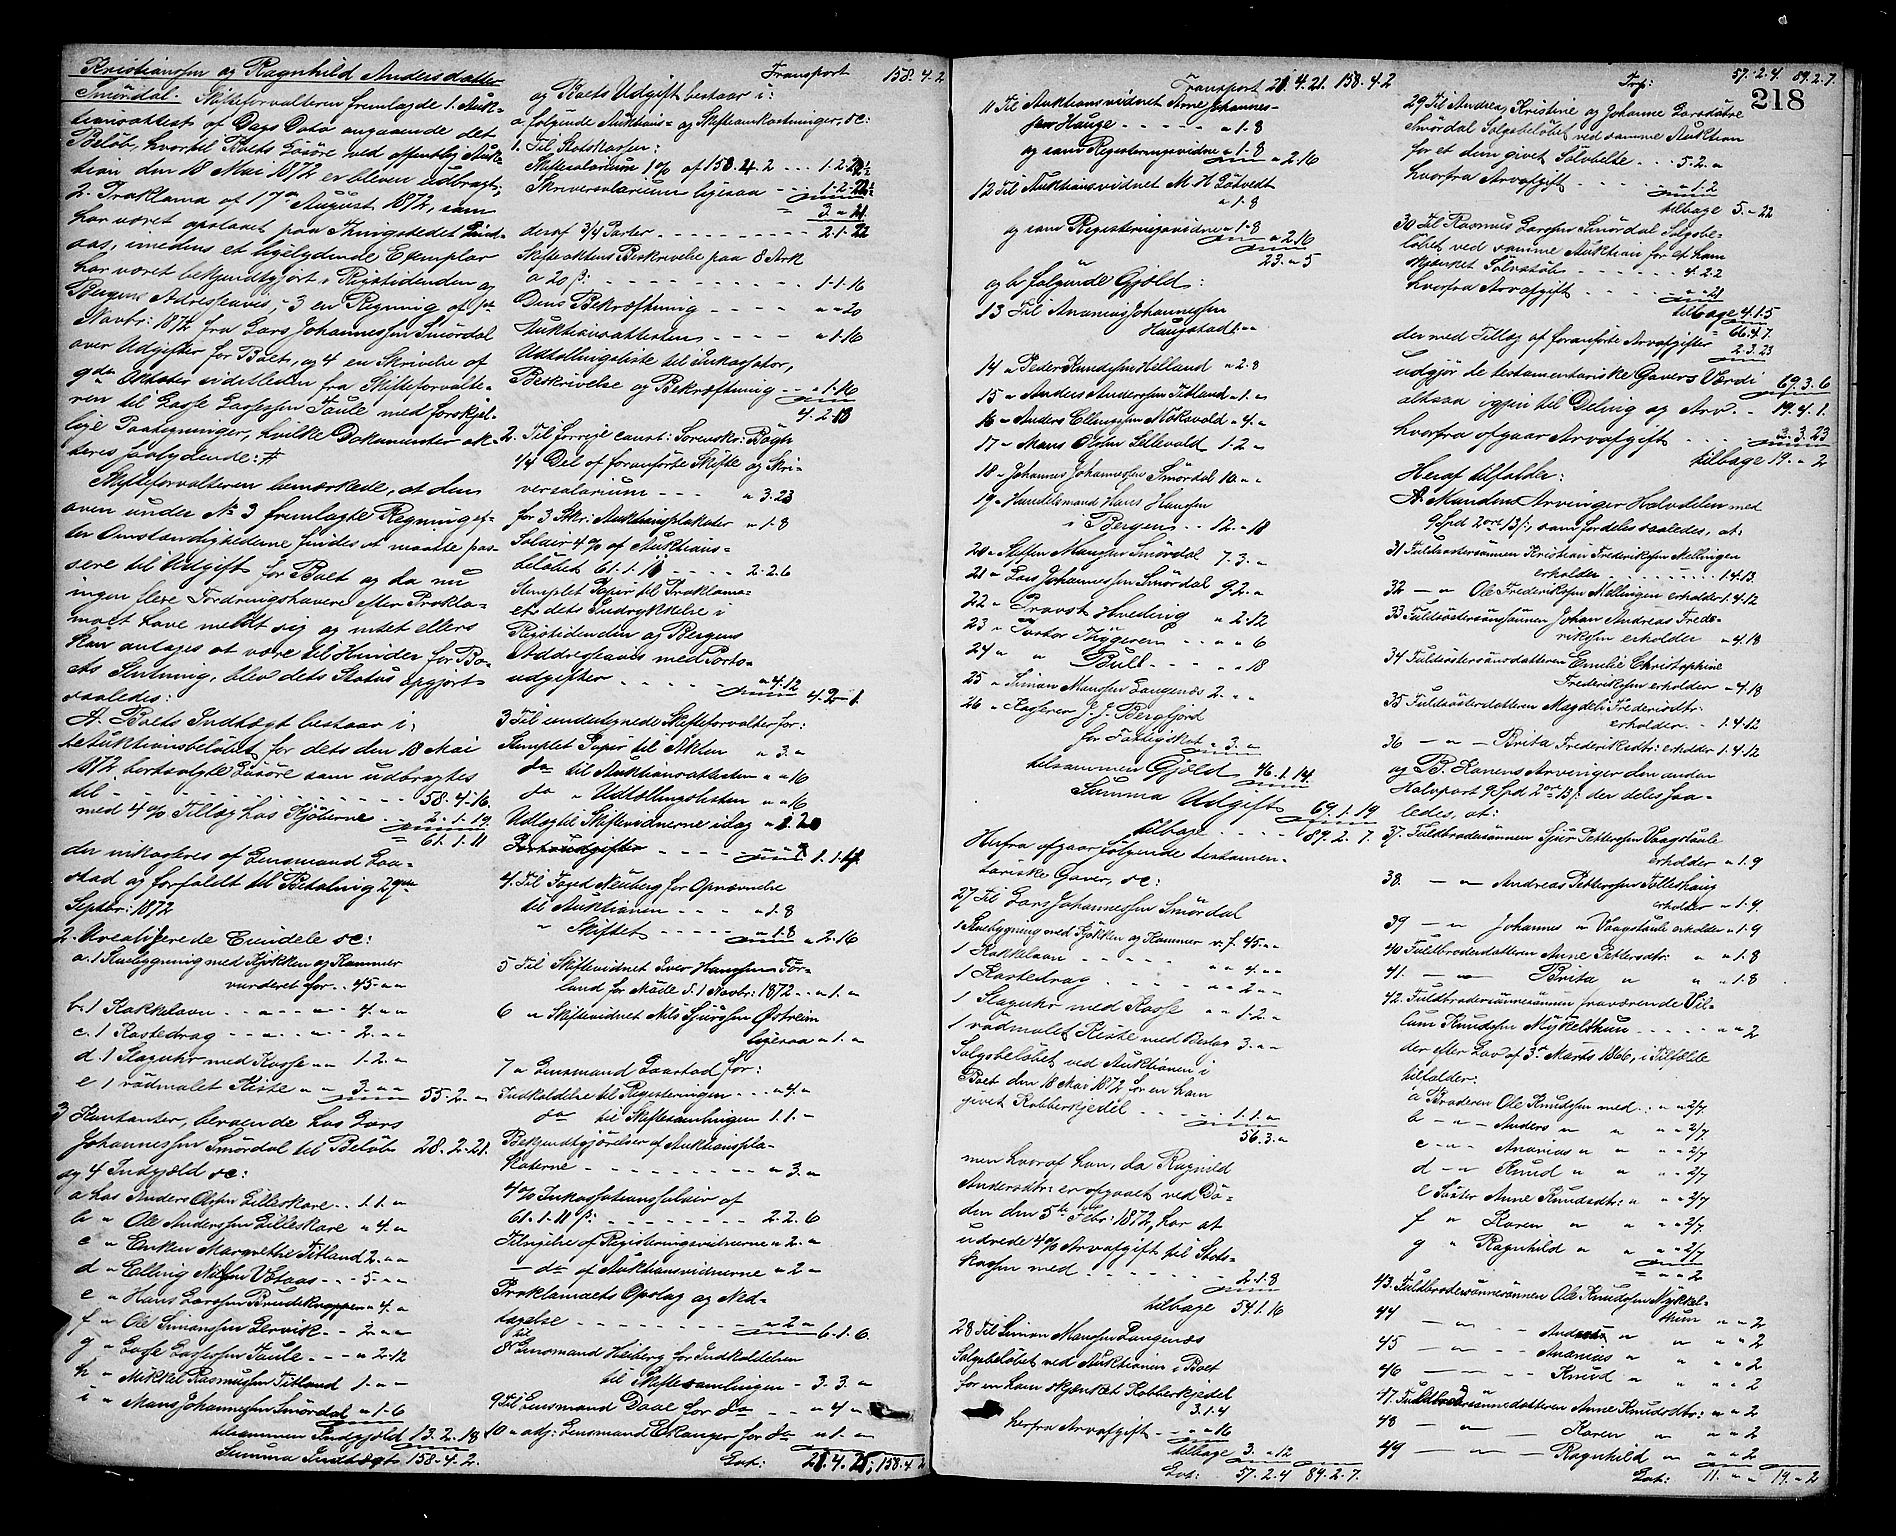 Kristianssen og Ragnhild Andersdatter
Smördal. Skifteforvalteren fremlagde 1. Auk-
tionsattest af Dags Dato angaaende det
Belöb, hvortil Boets Lösöre ved offentlig Auk-
tion den 18 Mai 1872 er bleven udbragt,
2. Proklama af 17de August 1872, som
har været opslaaet paa Thingstedet Lind-
aas, imedens et ligelydende Exemplar
har været bekjendtgjort i Rigstidenden og
Bergens Adresseavis, 3 en Regning af 1ste
Novbr: 1872 fra Lars Johannessen Smördal
over Udgifter for Boet, og 4 en Skrivelse af
9de Oktober sidstleden fra Skifteforvalte-
ren til Lasse Lassessen Taule med forskjel-
lige Paategninger, hvilke Dokumenter ak-
teres saalydende: #
Skifteforvalteren bemærkede, at den
oven under No 3 fremlagte Regning ef-
ter Omstændighederne findes at maatte pas-
sere til Udgift for Boet og da nu
ingen flere Fordringshavere efter Prokla-
maet have meldt sig og intet ellers
kan antages at være til Hinder for Bo-
ets Slutning, blev dets Status opgjort
saaledes:
A. Boets Indtægt bestaar i:
1 Auktionsbelöbet for dets den 18 Mai
1872 bortsolgte Lösöre som udbragtes
til - - - - 58.4.16.
med 4 % Tillæg hos Kjöberne - - 2.1.19.
61.1.11
der inkasseres af Lensmand Laa-
stad og forfaldt til Betaling 2den
Septbr: 1872
2. Urealiserede Eiendele sc:
a. 1 Stuebygning med Kjökken og Kammer
vurderet for .. 45 " "
b. 1 Kakkelovn - - - 4. " "
c. 1 Kastedrag - - - 2. " "
d. 1 Slaguhr med Kasse " " 1.2. "
e 1 rödmalet Kiste " " 3. " " 55.2. "
3 Kontanter, beroende hos Lars
Johannessen Smördal til Belöb 28.2.21.
og 4 Indgjæld sc:
a hos Anders Olsen Lilleskare .. 1.1. "
b " Ole Anderssen Lilleskare " 4. "
c " Enken Margrethe Titland 2. " "
d " Elling Nilssen Votaas - - 5. " "
e " Hans Larssen Bruseknappen " 4. "
f " Ole Simonssen Lervik - - 2. " "
g " Lasse Lassessen Taule - - " 2.12
h " Mikkel Rasmussen Titland 1. " "
i " Mons Johannessen Smördal " 1.6
tilsammen Indgjæld 13.2.18
Summa Indtægt 158.4.2.
Transport 158.4.2
og Boets Udgift bestaar i:
a. følgende Auktions- og Skifteomkostninger, sc:
1. Til Statskassen:
Skiftesalarium 1 % af 158.4.2 ... 1.2.22½
Skriversalarium ligesaa - - - 1.2.22½
3. " 21
deraf 3/4 Parter - - - 2.1.22
Skifteaktens Beskrivelse paa 8 Ark
a 20 ß: - - - 1.1.16
Dens Bekræftning - - - " " 20
Auktionsattesten - - - " 1.16
Udlodningsliste til Inkassator,
Beskrivelse og Bekræftning - - " 1.16
4.2.18
2. Til forrige const: Sorenskr: Bögh
1/4 Del af foranførte Skifte og Skri-
versalarium - - - " 3.23
for 3 Skr: Auktionsplakater " 1.8
Salair 4 % af Auktions-
belöbet 61.1.11 - - - 2.2.6
Stemplet Papir til Proklama-
et dets Indrykkelse i
Rigstidenden og Bergens
Addresseavis med Porto-
udgifter - - - " 4.12
4.2.1.
3 Til undertegnede Skifteforvalter for:
Stemplet Papir til Akten " 3. "
do til Auktionsattesten " " 16
do " Udlodningslisten " " 16
Udlagt til Skiftevidnerne idag " 1.20
Portoudgifter - - -
4. Til Foged Neuberg for Opnævnelse
til Auktionen - - - " 1.8
" Skiftet - - - " 1.8 " 2.16
5 Til Skiftevidnet Iver Hanssen For-
land for Möde d. 1 Novbr: 1872 - - " 1. "
6 " Skiftevidnet Nils Sjurssen Østreim
ligesaa " 1. "
7 " Lensmand Laastad for:
Indkaldelse til Registeringen - - " 4. "
do til Skiftesamlingen 1.1. "
Bekjendtgjörelser af Auktionspla-
katerne - - - " 3. "
4 % Inkassationssalair af
61.1.11 ß: - - - 2.2.6
Tilsigelse af Registeringsvidnerne " 2. "
do af Auktionsvidnerne " 2 "
Proklamaets Opslag og Ned-
tagelse - - - " 2 " 6.1.6.
8 til Lensmand Heiberg for Indkaldelsen
til Skiftesamlingen - 3.3. "
9 Til Lensmand Daae for do - - " 4 "
10 " adj: Lensmand Ekanger for do " 1. "
Lat: 158.4.2
Transport 21.4.21. 158.4.2
11 Til Auktionsvidnet Arne Johannes-
sen Hauge - - - " 1.8
og som Registeringsvidne " 1.8 " 2.16
12 Til Auktionsvidnet M H Götvedt
" 1.8
og som Registeringsvidne " 1.8 " 2.16
23. " 5
og b følgende Gjæld:
13 Til Ananias Johannessen
Haugstad 1. " "
14 " Peder Knudssen Helland " 2.8
15 " Anders Anderssen Titland " 1. "
16 " Anders Ellingssen Moksvold " 4. "
17 " Mons Olsen Lillevald 1.2 "
18 " Johannes Johannessen Smördal 10. " "
19 " Handelsmand Hans Hanssen
i Bergen .. 12. " 18
20 " Steffen Monssen Smördal 7.3. "
21 " Lars Johannessen Smördal 9.2. "
22 " Provst Hvoding " 2.12
23 " Pastor Thygesen - - " " 6
24 " " Bull - - - " " 18
25 " Simon Monssen Langenæs 2. " "
26 " Kasserer J. J. Bergfjord
for Fattigskat " 3. "
tilsammen Gjæld 46.1.14.
Summa Udgift 69.1.19
tilbage - - - 89.2.7.
Herfra afgaar følgende testamen-
tariske Gaver, sc:
27 Til Lars Johannessen Smördal
1 Stuebygning med Kjökken og Kammer v. f. 45 " "
1 Kakkelovn - - - " " 4. " "
1 Kastedrag - - - " " 2. " "
1 Slaguhr med Kasse " " 1.2. "
1 rödmalet Kiste med Beslag 3. " "
Salgsbelöbet ved Auktionen i
Boet den 18 Mai 1872 for en ham
givet Kobberkjedel - - - 1.1. "
56.3. "
men hvoraf han, da Ragnild
Andersdtr: er afgaaet ved Dö-
den den 5te Febr: 1872, har at
udrede 4 % Arvafgift til Stats-
kassen med - - - 2.1.8
tilbage 54.1.16
28 Til Simon Monssen Langenæs
Salgsbelöbet ved Auktionen i Boet
for en ham skjænket Kobberkjedel
3.1.4
herfra Arvafgift - - " " 16
tilbage 3. " 12
Lat: 57.2.4 89.2.7.
Trp: 57.2.4. 89.2.7.
218
29 Til Andrea, Kristine og Johanne Larsdötre
Smördal Salgsbelöbet ved samme Auktion
for et dem givet Sölvbelte - - - 5.2. "
hvorfra Arvafgift - - - " 1.2
tilbage 5. " 22
30 Til Rasmus Larssen Smördal Salgsbe-
löbet ved samme Auktion for et ham
skjænket Sölvstöb - - - 4.2.2
hvorfra Arvafgift - - - " " 21
tilbage 4.1.5
66.4.7
der med Tillæg af foranførte Arvafgifter
2.3.23
udgjør de testamentariske Gavers Værdi 69.3.6
altsaa igjen til Deling og Arv - - 19.4.1.
hvorfra afgaar Arvafgift - - - " 3.23
tilbage 19. " 2
Heraf tilfalder:
A. Mandens Arvinger Halvdelen med
9 Spd 2ort 13ß; som fordeles saaledes, at:
31 Fuldsøstersønnen Kristian Frederikssen Mellingen
erholder - - - 1.4.13.
32 - " - Ole Frederikssen Mellingen erholder 1.4.12
33 Fuldsøstersønssønnen Johan Andreas Frede-
rikssen erholder " 4.18
34 Fuldsøstersønsdatteren Emilie Christophine
Frederikssen erholder " 4.18
35 Fuldsøsterdatteren Magdeli Frederiksdtr:
erholder - - 1.4.12
36 - " - Brita Frederiksdtr: erholder 1.4.12
og B. Konens Arvinger den anden
Halvpart 9 Spd 2ort 13ß: der deles saa-
ledes, at:
37. Fuldbrodersønnen Sjur Pettersen Vaagstaule
erholder " 1.9
38. - " - Andreas Petterssen Tolleshaug
erholder " 1.9.
39 - " - Johannes " Vaagstaule erholder " 1.9
40 Fuldbroderdatteren Anne Pettersdtr: " " 1.8
41. - " - Brita " " 1.8
42. Fuldbrodersønnesønnen fraværende Vil-
lum Knudssen Mykelthun - - - " " 2
der efter Lov af 3die Marts 1866, i Tilfælde
tilfalder:
a Broderen Ole Knudssen med .. " " 2/7
b - " - Anders " " " " 2/7
c - " - Ananias " " " " 2/7
d - " - Knud " " " " 2/7
e Söster Anne Knudsdtr: " " " 2/7
f " Karen " " " " 2/7
g " Ragnhild " " " " 2/7
" " 2
43. Fuldbrodersønnesønnen Ole Knudssen Mykkel-
thun " " 2
44 - " - - Anders " " " 2
45 - " - - Ananias " " " 2
46 - - - Knud " " " 2
47. Fuldbrodersønnedatteren Anne Knudsdtr: " " 2
48 - " - Karen " " " 2
49 - " - Ragnhild " " " 2
Lat: 11. " " 19. " 2